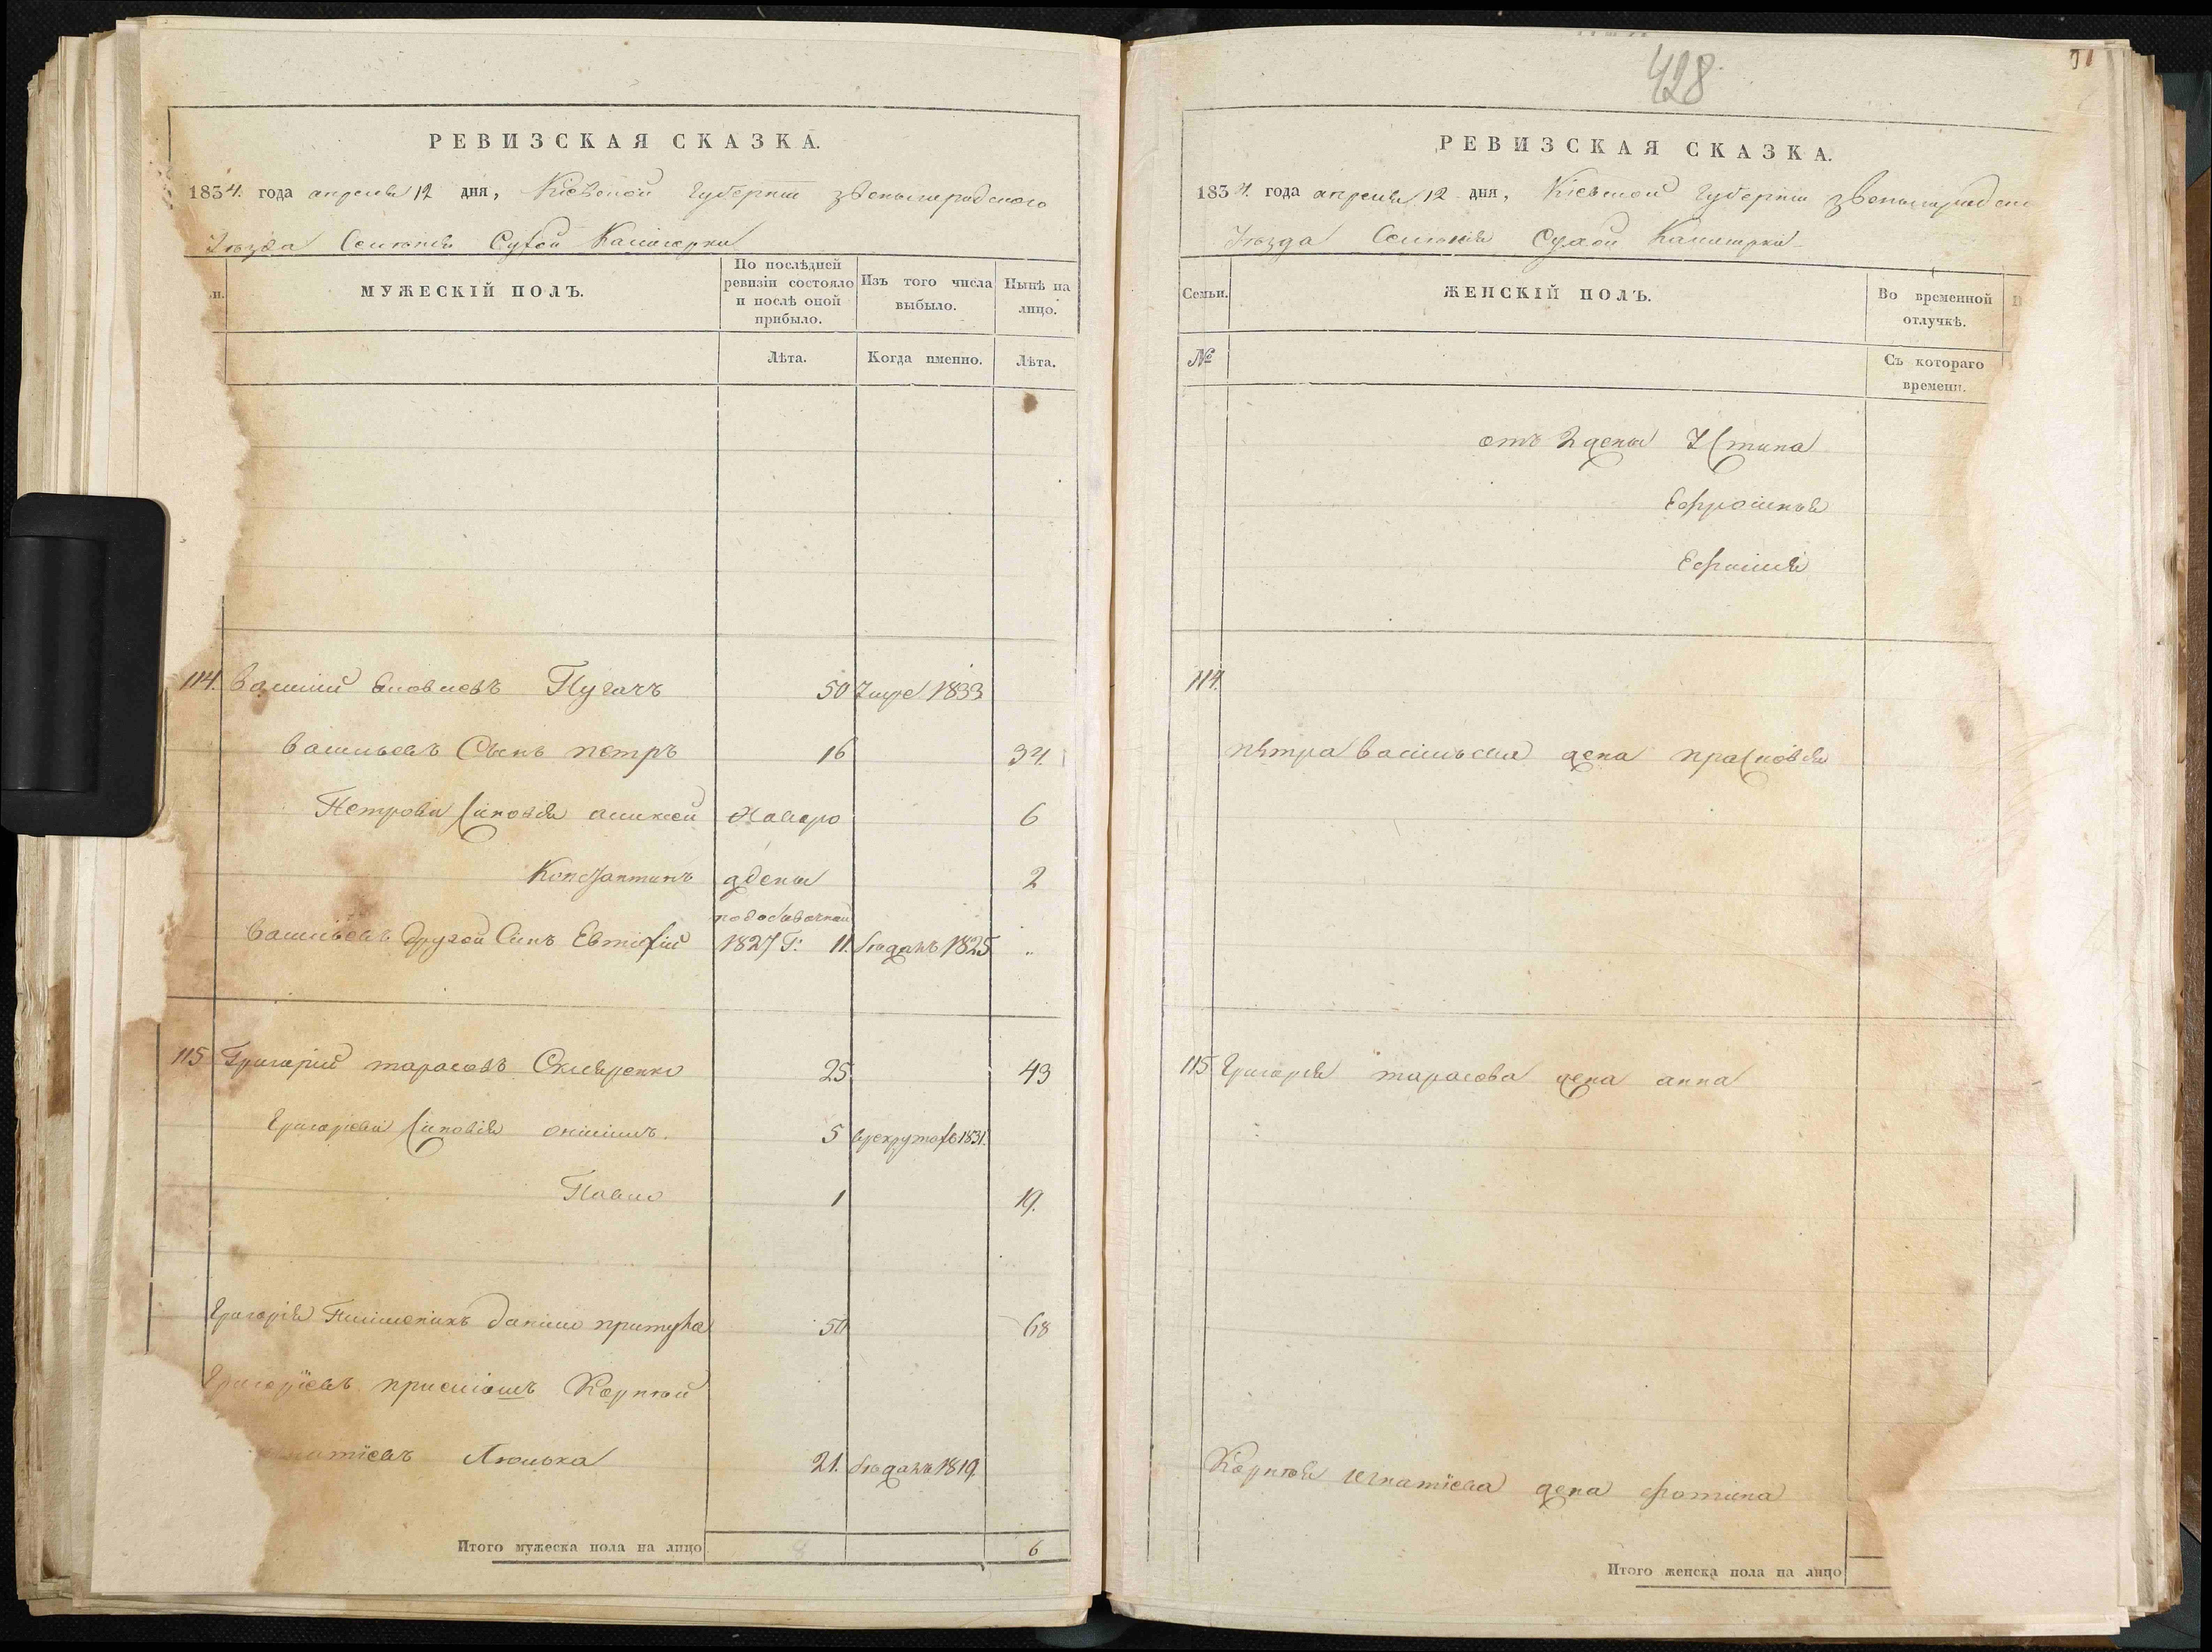 РЕВИЗСКАЯ СКАЗКА.
1834. года апреля 12 дня, Кіевской Губерніи звенигородского
Уезда Селенія Сухой Калигорки
МУЖЕСКІЙ ПОЛЪ.
По послѣдней ревизіи состояло и послѣ оной прибыло.
Изъ того числа выбыло.
Нынѣ на лицо.
Лѣта.
Когда именно.
Лѣта.
114. Василий Пугачъ 50 Умре 1833
васильевъ Сынъ петръ 16 34.
Петрови синовья аликсей 6
Константинъ 2
васильевъ другой Синъ Евтихій 1827 Г: 11. 1825 "
115 Григорий тарасовъ Скляренко 25 43
Григориеви синовья онисимъ. 5 врекрутахъ 1831.
Павло 1 19.
Григорія данило притула 50 68
Григоріевъ Корнѣй
21. 1819
Итого мужеска пола на лицо 6
428
РЕВИЗСКАЯ СКАЗКА.
1834. года апреля 12 дня, Кіевской Губерніи
Уезда Селенія Сухой Калигорки
Семьи.
ЖЕНСКІЙ ПОЛЪ.
Во временной отлучкѣ.
№
Съ котораго времени.
отъ 2 жены Устина
Ефросинья
Ефимія
114.
петра васильева жена прасковья
115 Григорія тарасова жена анна
Корнѣя игнатіева жена фотина
Итого женска пола на лицо